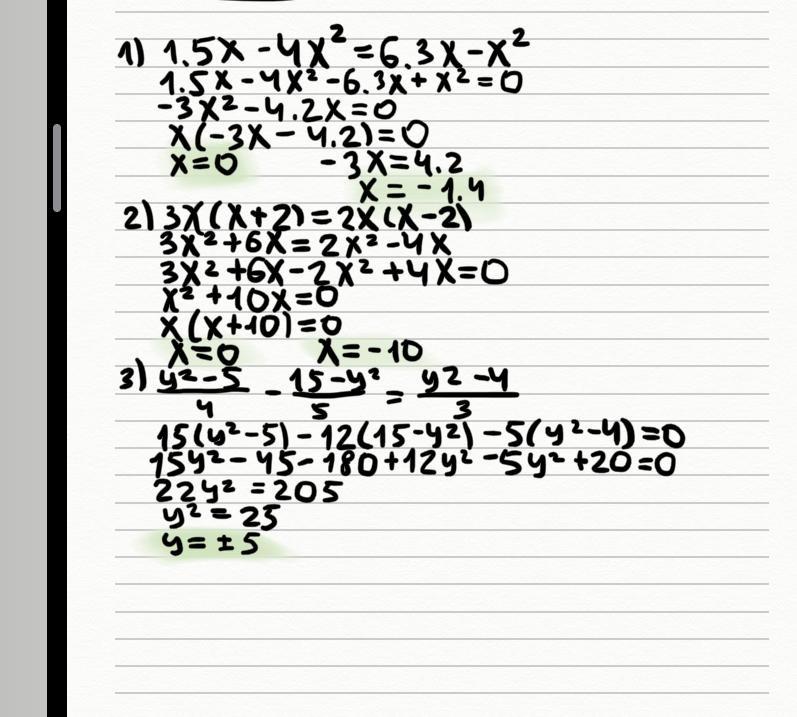 1) 1.5x - 4x² = 6.3x - x²
1.5x - 4x² - 6.3x + x² = 0
-3x² - 4.2x = 0
x(-3x - 4.2) = 0
x = 0 -3x = 4.2
x = -1.4
2) 3x(x+2) = 2x(x-2)
3x² + 6x = 2x² - 4x
3x² + 6x - 2x² + 4x = 0
x² + 10x = 0
x(x+10) = 0
x = 0 x = -10
3) (y² - 5)/4 - (15 - y²)/5 = (y² - 4)/3
15(y² - 5) - 12(15 - y²) - 5(y² - 4) = 0
15y² - 45 - 180 + 12y² - 5y² + 20 = 0
22y² = 205
y² = 25
y = ±5